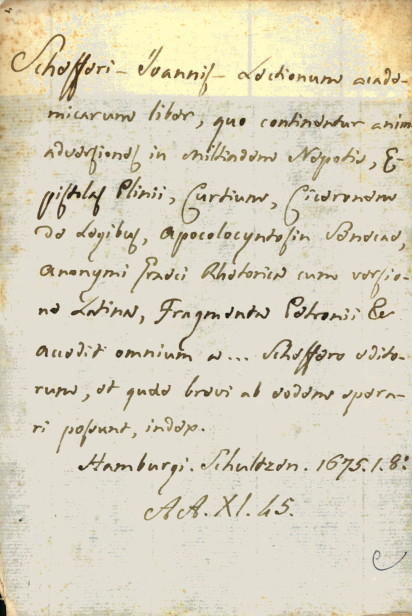 Schefferi – Joannis – Lectionum acade-
micarum liber, quo continentur anim
adversiones in Miltiadem Nepotis, E-
pistolas Plinii, Curtium, Ciceronem
de Legibus, Apocolocyntosin Senecae,
Anonymi Graeci Rhetorica cum versio-
ne Latina, Fragmenta Petronii &c
accedit omnium a ... Scheffero edito-
rum, et quae brevi ab eodem spera-
ri possunt, index.
Hamburgi. Schultzen. 1675. 1. 8º
AA. XI. 45.